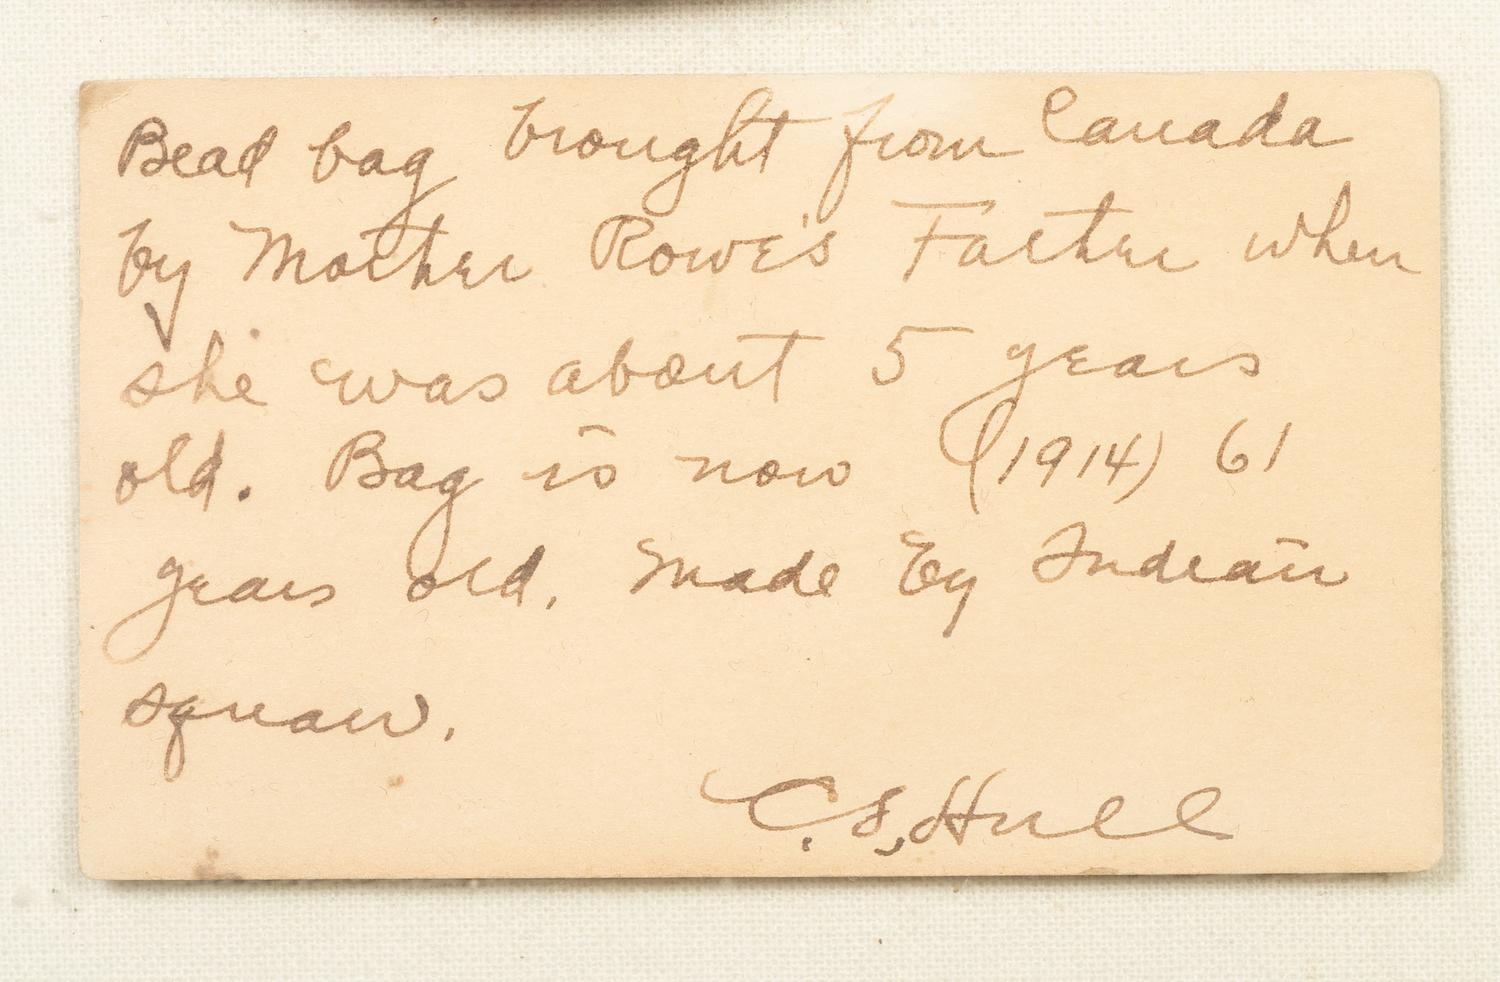 Bead bag brought from Canada
by Mother Rowe's Father when
she was about 5 years
old. Bag is now (1914) 61
years old. Made by Indian
squaw.
C. S. Hull